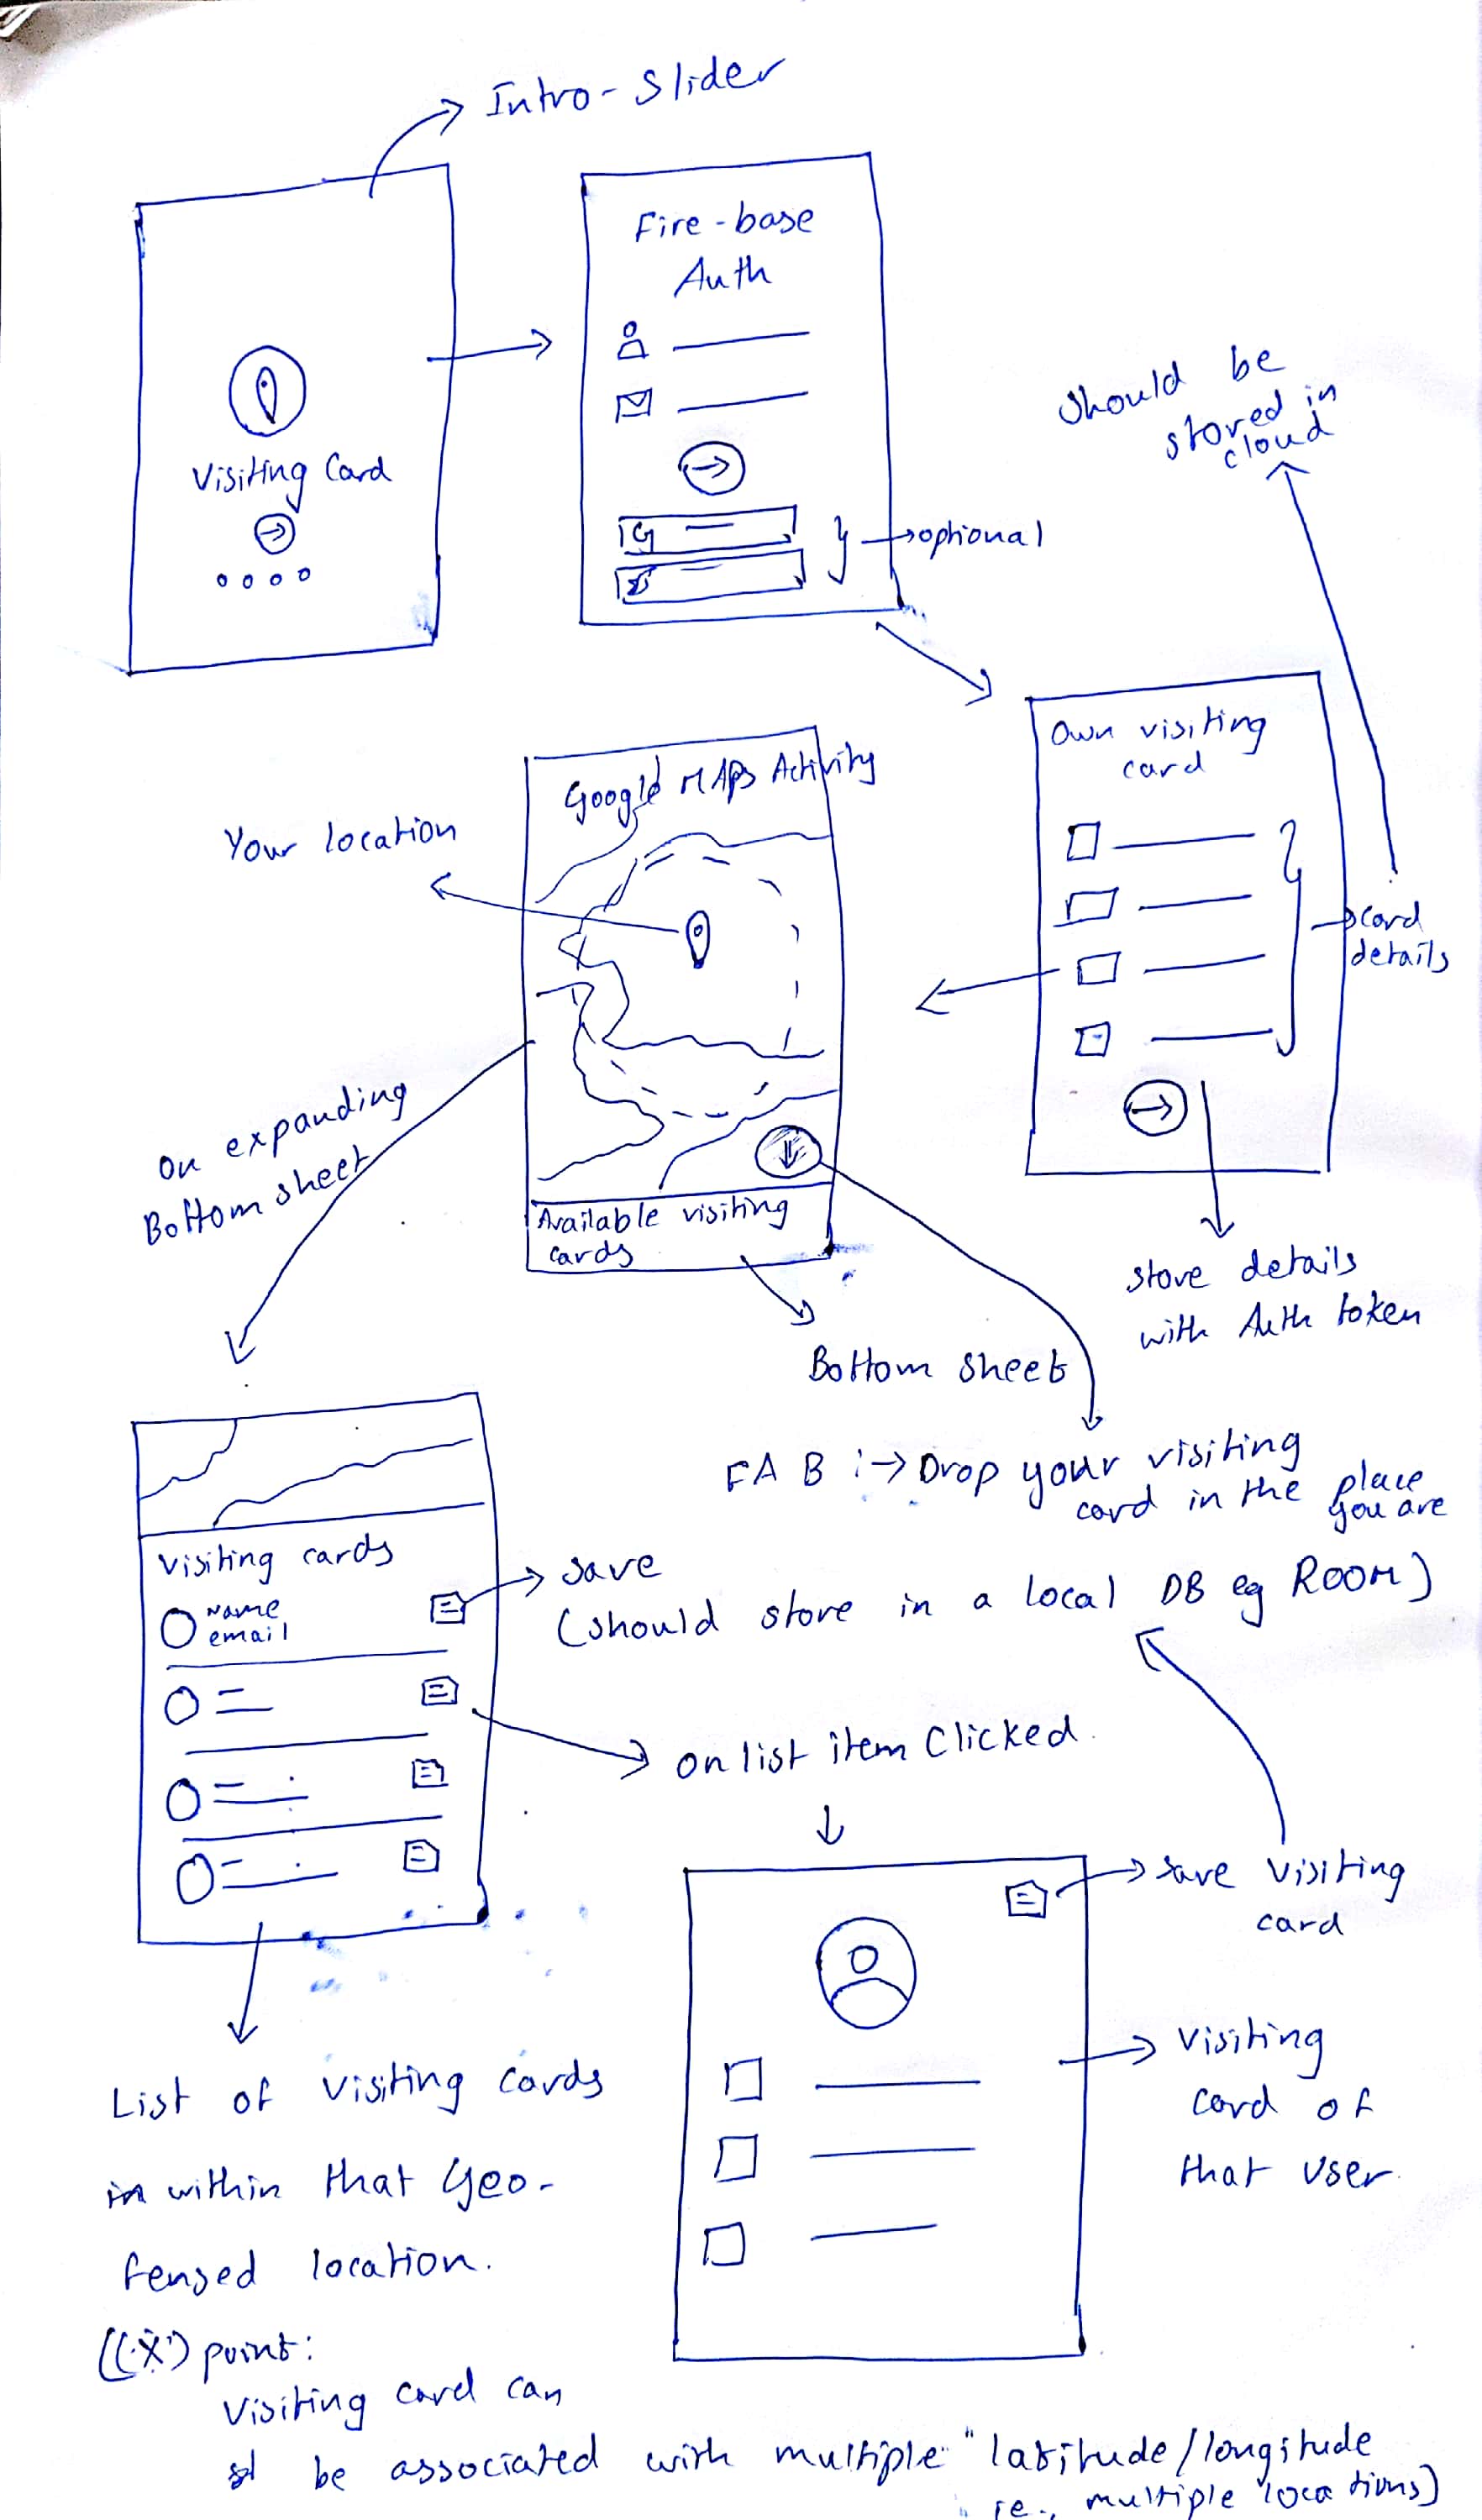 Intro-Slider
Fire-base
Auth
Visiting Card
G
optional
Should be
stored in
cloud
Own visiting
card
card
details
store details
with Auth token
Google MAPs Activity
Your location
Available visiting
cards
On expanding
Bottom sheet
Bottom sheet
FAB :→ Drop your visiting
card in the place
you are
Visiting cards
Name
email
save
(should store in a local DB eg ROOM)
on list item Clicked.
save visiting
card
Visiting
card of
that user.
List of visiting cards
in within that Geo-
fensed location.
((x)) point:
Visiting card can
be associated with multiple "latitude/longitude
ie., multiple locations)